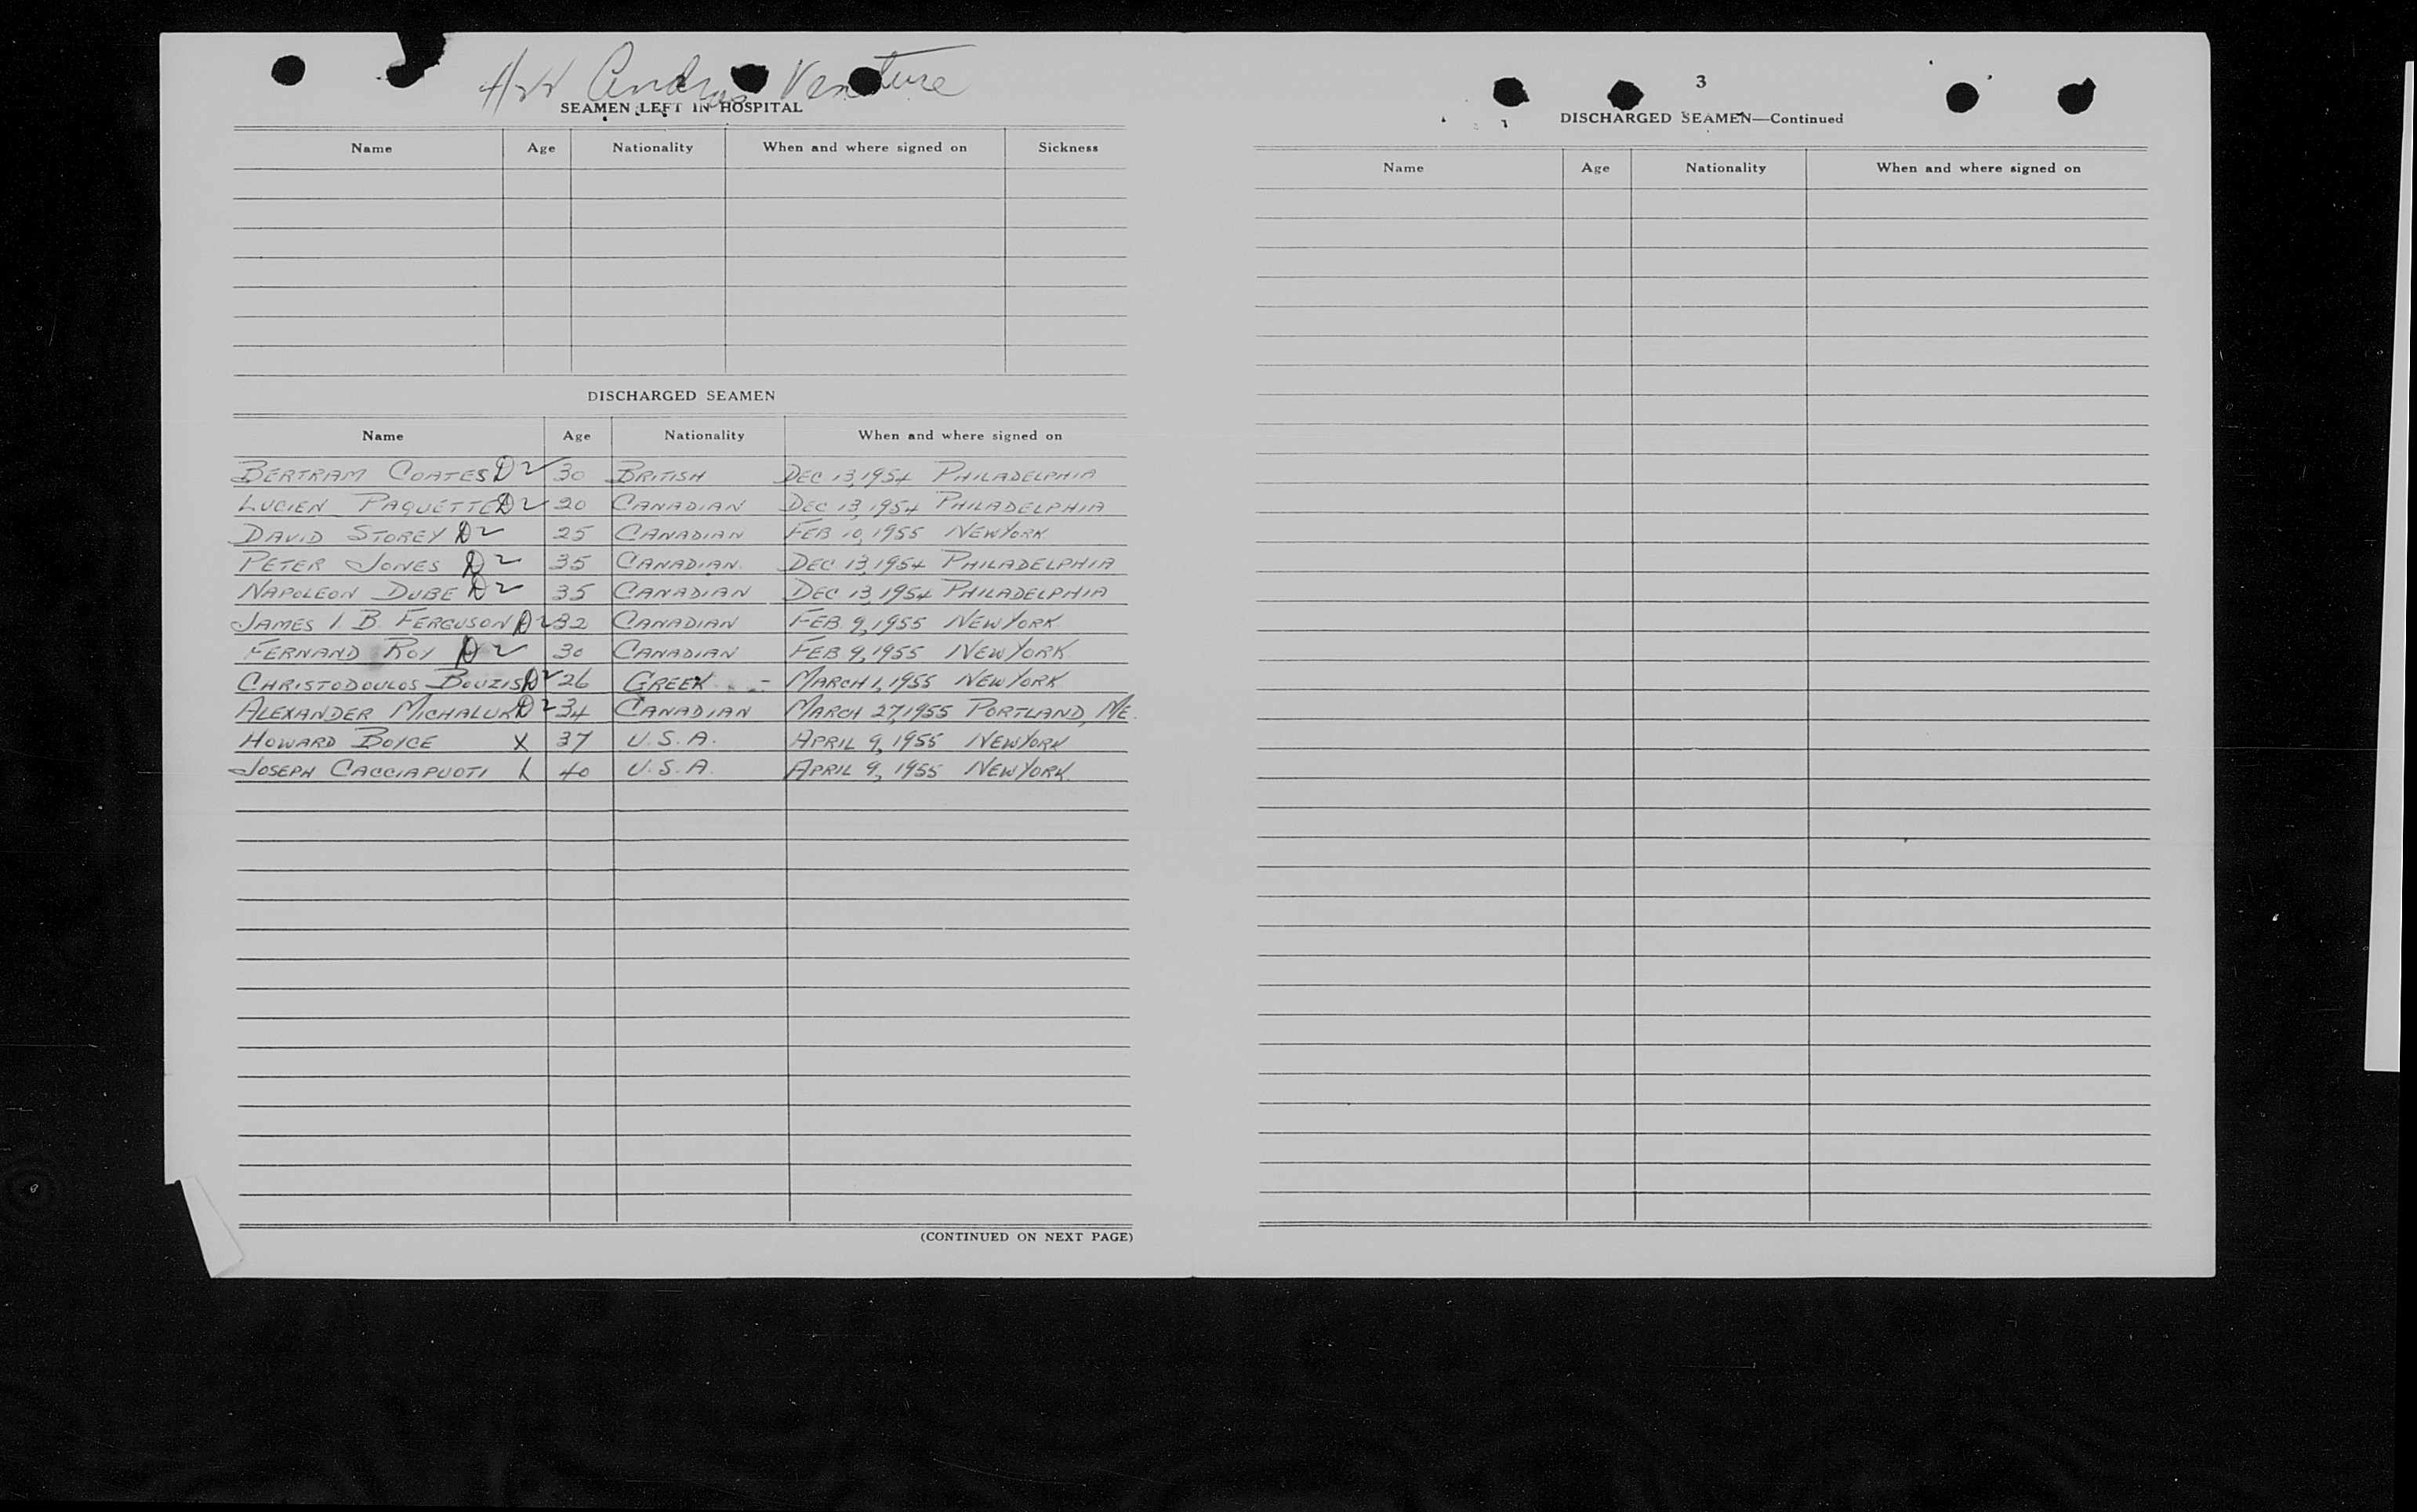 Andros Venture
SEAMEN LEFT IN HOSPITAL
Name Age Nationality When and where signed on Sickness
DISCHARGED SEAMEN
Name Age Nationality When and where signed on
BERTRAM COATES D 30 BRITISH DEC 13, 1954 PHILADELPHIA
LUCIEN PAQUETTE D 20 CANADIAN DEC 13, 1954 PHILADELPHIA
DAVID STOREY D 25 CANADIAN FEB 10, 1955 NEW YORK
PETER JONES D 35 CANADIAN. DEC 13, 1954 PHILADELPHIA
NAPOLEON DUBE D 35 CANADIAN DEC 13, 1954 PHILADELPHIA
JAMES I. B. FERGUSON D 32 CANADIAN FEB. 9, 1955 NEW YORK
FERNAND ROY D 30 CANADIAN FEB. 9, 1955 NEW YORK
CHRISTODOULOS BOUZIS D 26 GREEK MARCH 1, 1955 NEW YORK
ALEXANDER MICHALUK D 34 CANADIAN MARCH 27, 1955 PORTLAND, ME.
HOWARD BOYCE X 37 U.S.A. APRIL 9, 1955 NEW YORK
JOSEPH CACCIAPUOTI X 40 U.S.A. APRIL 9, 1955 NEW YORK.
(CONTINUED ON NEXT PAGE)
3
DISCHARGED SEAMEN—Continued
Name Age Nationality When and where signed on